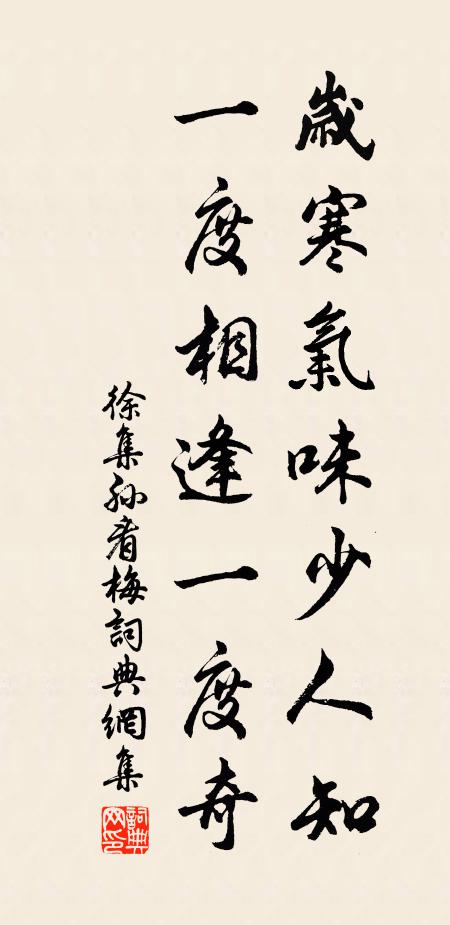 歲寒氣味少人知
一度相逢一度奇
徐集孫看梅詞典網集
詞典網印